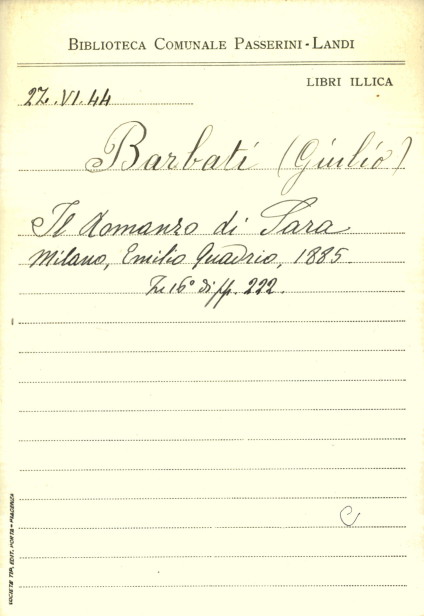 BIBLIOTECA COMUNALE PASSERINI-LANDI
LIBRI ILLICA
27.VI.44
Barbati (Giulio)
Il Romanzo di Sara
Milano, Emilio Quadrio, 1885.
In 16° di pp. 222.
C
SOCIETÀ TIP. EDIT. PORTA - PIACENZA